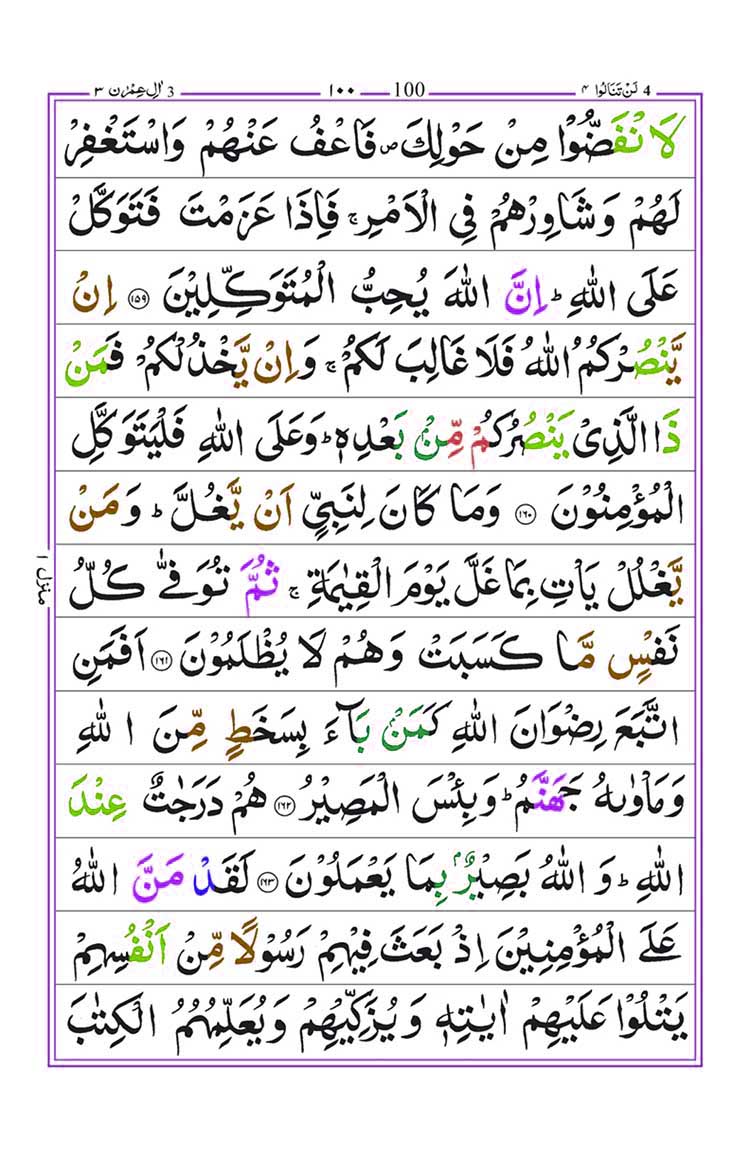 4 لَنْ تَنَالُوا ٤ 100 ١٠٠ 3 اٰلِ عِمْرٰن ٣
لَا نْفَضُّوْا مِنْ حَوْلِكَ ۪ فَاعْفُ عَنْهُمْ وَاسْتَغْفِرْ
لَهُمْ وَشَاوِرْهُمْ فِي الْاَمْرِ ۚ فَاِذَا عَزَمْتَ فَتَوَكَّلْ
عَلَى اللّٰهِ ؕ اِنَّ اللّٰهَ يُحِبُّ الْمُتَوَكِّلِيْنَ ۝١٥٩ اِنْ
يَّنْصُرْكُمُ اللّٰهُ فَلَا غَالِبَ لَكُمْ ۚ وَاِنْ يَّخْذُلْكُمْ فَمَنْ
ذَا الَّذِيْ يَنْصُرُكُمْ مِّنْۢ بَعْدِهٖ ؕ وَعَلَى اللّٰهِ فَلْيَتَوَكَّلِ
الْمُؤْمِنُوْنَ ۝١٦٠ وَمَا كَانَ لِنَبِيٍّ اَنْ يَّغُلَّ ؕ وَمَنْ
يَّغْلُلْ يَاْتِ بِمَا غَلَّ يَوْمَ الْقِيٰمَةِ ۚ ثُمَّ تُوَفّٰى كُلُّ
نَفْسٍ مَّا كَسَبَتْ وَهُمْ لَا يُظْلَمُوْنَ ۝١٦١ اَفَمَنِ
اتَّبَعَ رِضْوَانَ اللّٰهِ كَمَنْۢ بَآءَ بِسَخَطٍ مِّنَ اللّٰهِ
وَمَاْوٰىهُ جَهَنَّمُ ؕ وَبِئْسَ الْمَصِيْرُ ۝١٦٢ هُمْ دَرَجٰتٌ عِنْدَ
اللّٰهِ ؕ وَاللّٰهُ بَصِيْرٌۢ بِمَا يَعْمَلُوْنَ ۝١٦٣ لَقَدْ مَنَّ اللّٰهُ
عَلَى الْمُؤْمِنِيْنَ اِذْ بَعَثَ فِيْهِمْ رَسُوْلًا مِّنْ اَنْفُسِهِمْ
يَتْلُوْا عَلَيْهِمْ اٰيٰتِهٖ وَيُزَكِّيْهِمْ وَيُعَلِّمُهُمُ الْكِتٰبَ
منزل ١